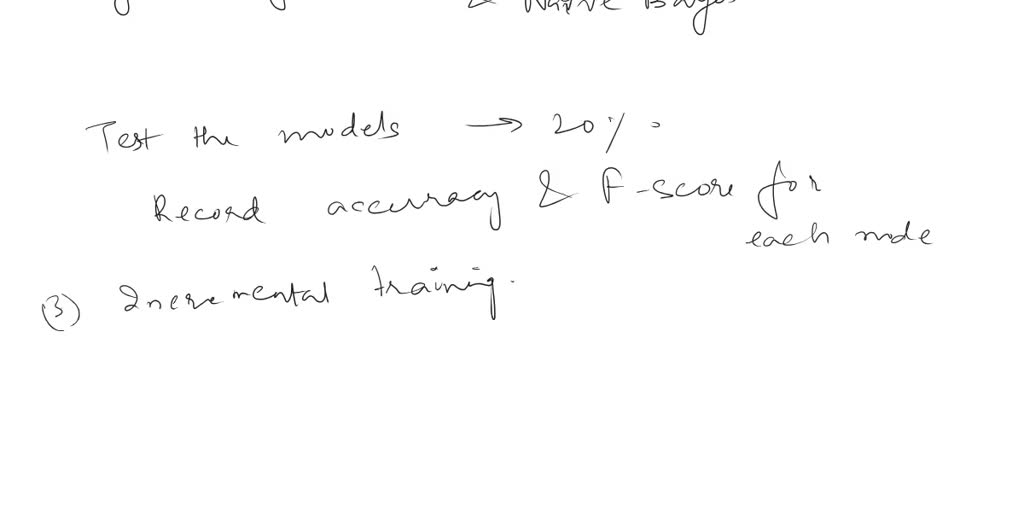 & Naive Bayes
Test the models → 20%.
Record accuracy & F-score for
each node
(3) Incremental training.